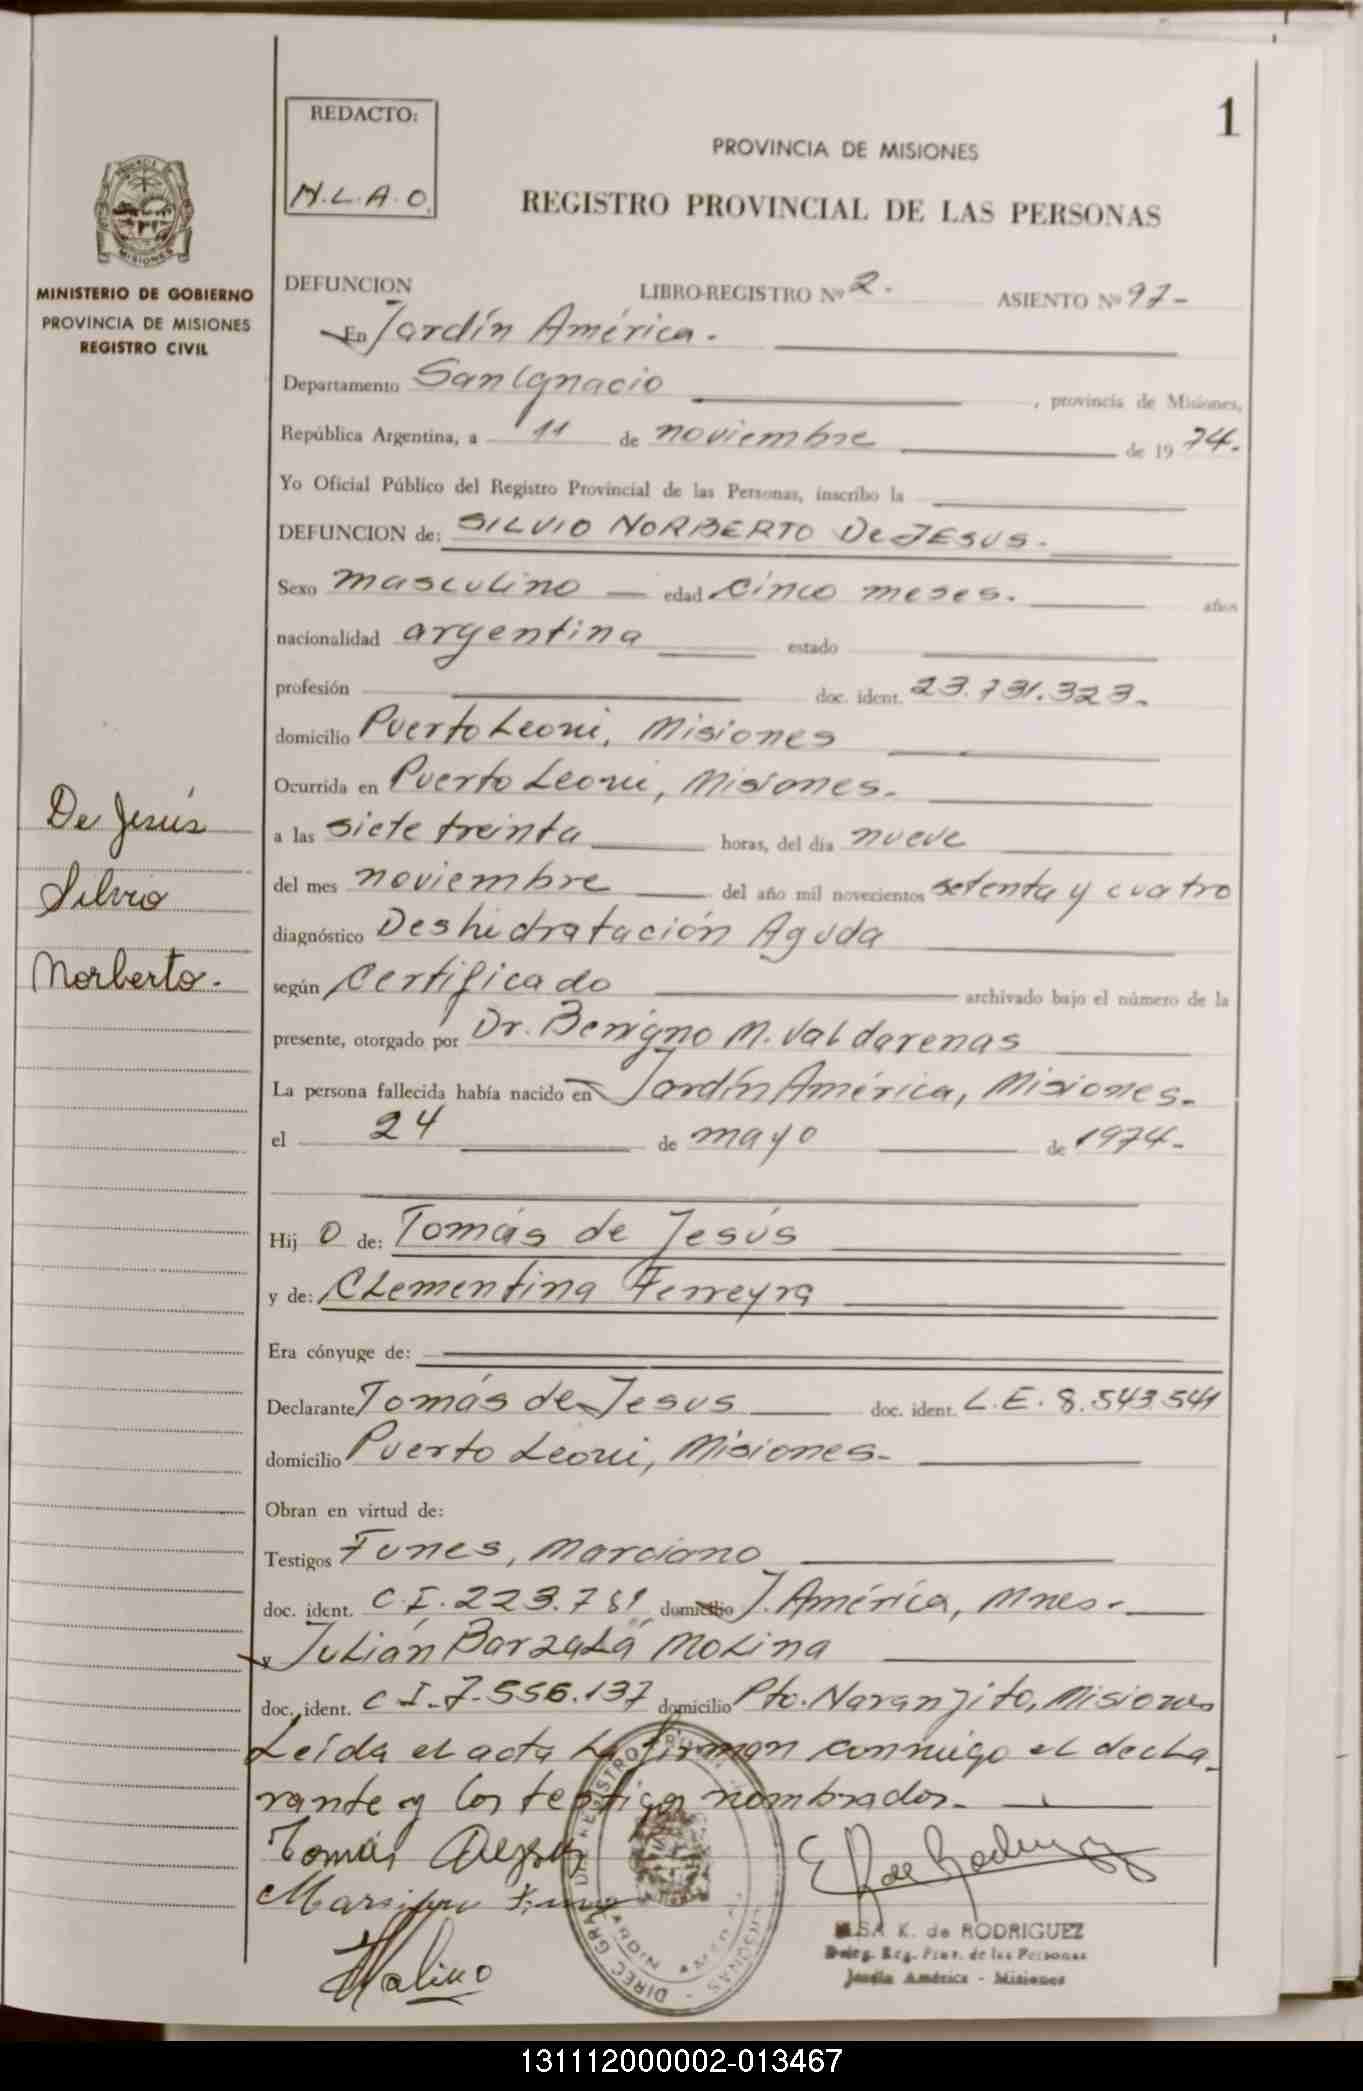 1
REDACTO:
N.L.A.O.
PROVINCIA DE MISIONES
REGISTRO PROVINCIAL DE LAS PERSONAS
MISIONES
MINISTERIO DE GOBIERNO
PROVINCIA DE MISIONES
REGISTRO CIVIL
DEFUNCION LIBRO-REGISTRO Nº 2. ASIENTO Nº 97-
En Jardín América.
Departamento San Ignacio, provincia de Misiones,
República Argentina, a 11 de noviembre de 1974.
Yo Oficial Público del Registro Provincial de las Personas, inscribo la
DEFUNCION de: SILVIO NORBERTO De JESUS.
Sexo masculino edad cinco meses. años
nacionalidad argentina estado
profesión doc. ident. 23.731.323.
domicilio Puerto Leoni, Misiones
Ocurrida en Puerto Leoni, Misiones.
a las siete treinta horas, del día nueve
del mes noviembre del año mil novecientos setenta y cuatro
diagnóstico Deshidratación Aguda
según Certificado archivado bajo el número de la
presente, otorgado por Dr. Benigno M. Valdarenas
La persona fallecida había nacido en Jardín América, Misiones.
el 24 de mayo de 1974.
Hijo de: Tomás de Jesús
y de: Clementina Ferreyra
Era cónyuge de:
Declarante Tomás de Jesus doc. ident. L.E. 8.543.541
domicilio Puerto Leoni, Misiones.
Obran en virtud de:
Testigos Funes, Marciano
doc. ident. C.I. 223.781 domicilio J. América, Mnes.
y Julián Barzalá Molina
doc. ident. C I-7.556.137 domicilio Pto. Naranjito, Misiones
Leída el acta la firman conmigo el decla-
rante y los testigos nombrados.
De Jesús
Silvio
Norberto.
Tomás
E R de Rodriguez
Molino
K. de RODRIGUEZ
Deleg. Reg. Prov. de las Personas
Jardín América - Misiones
131112000002-013467